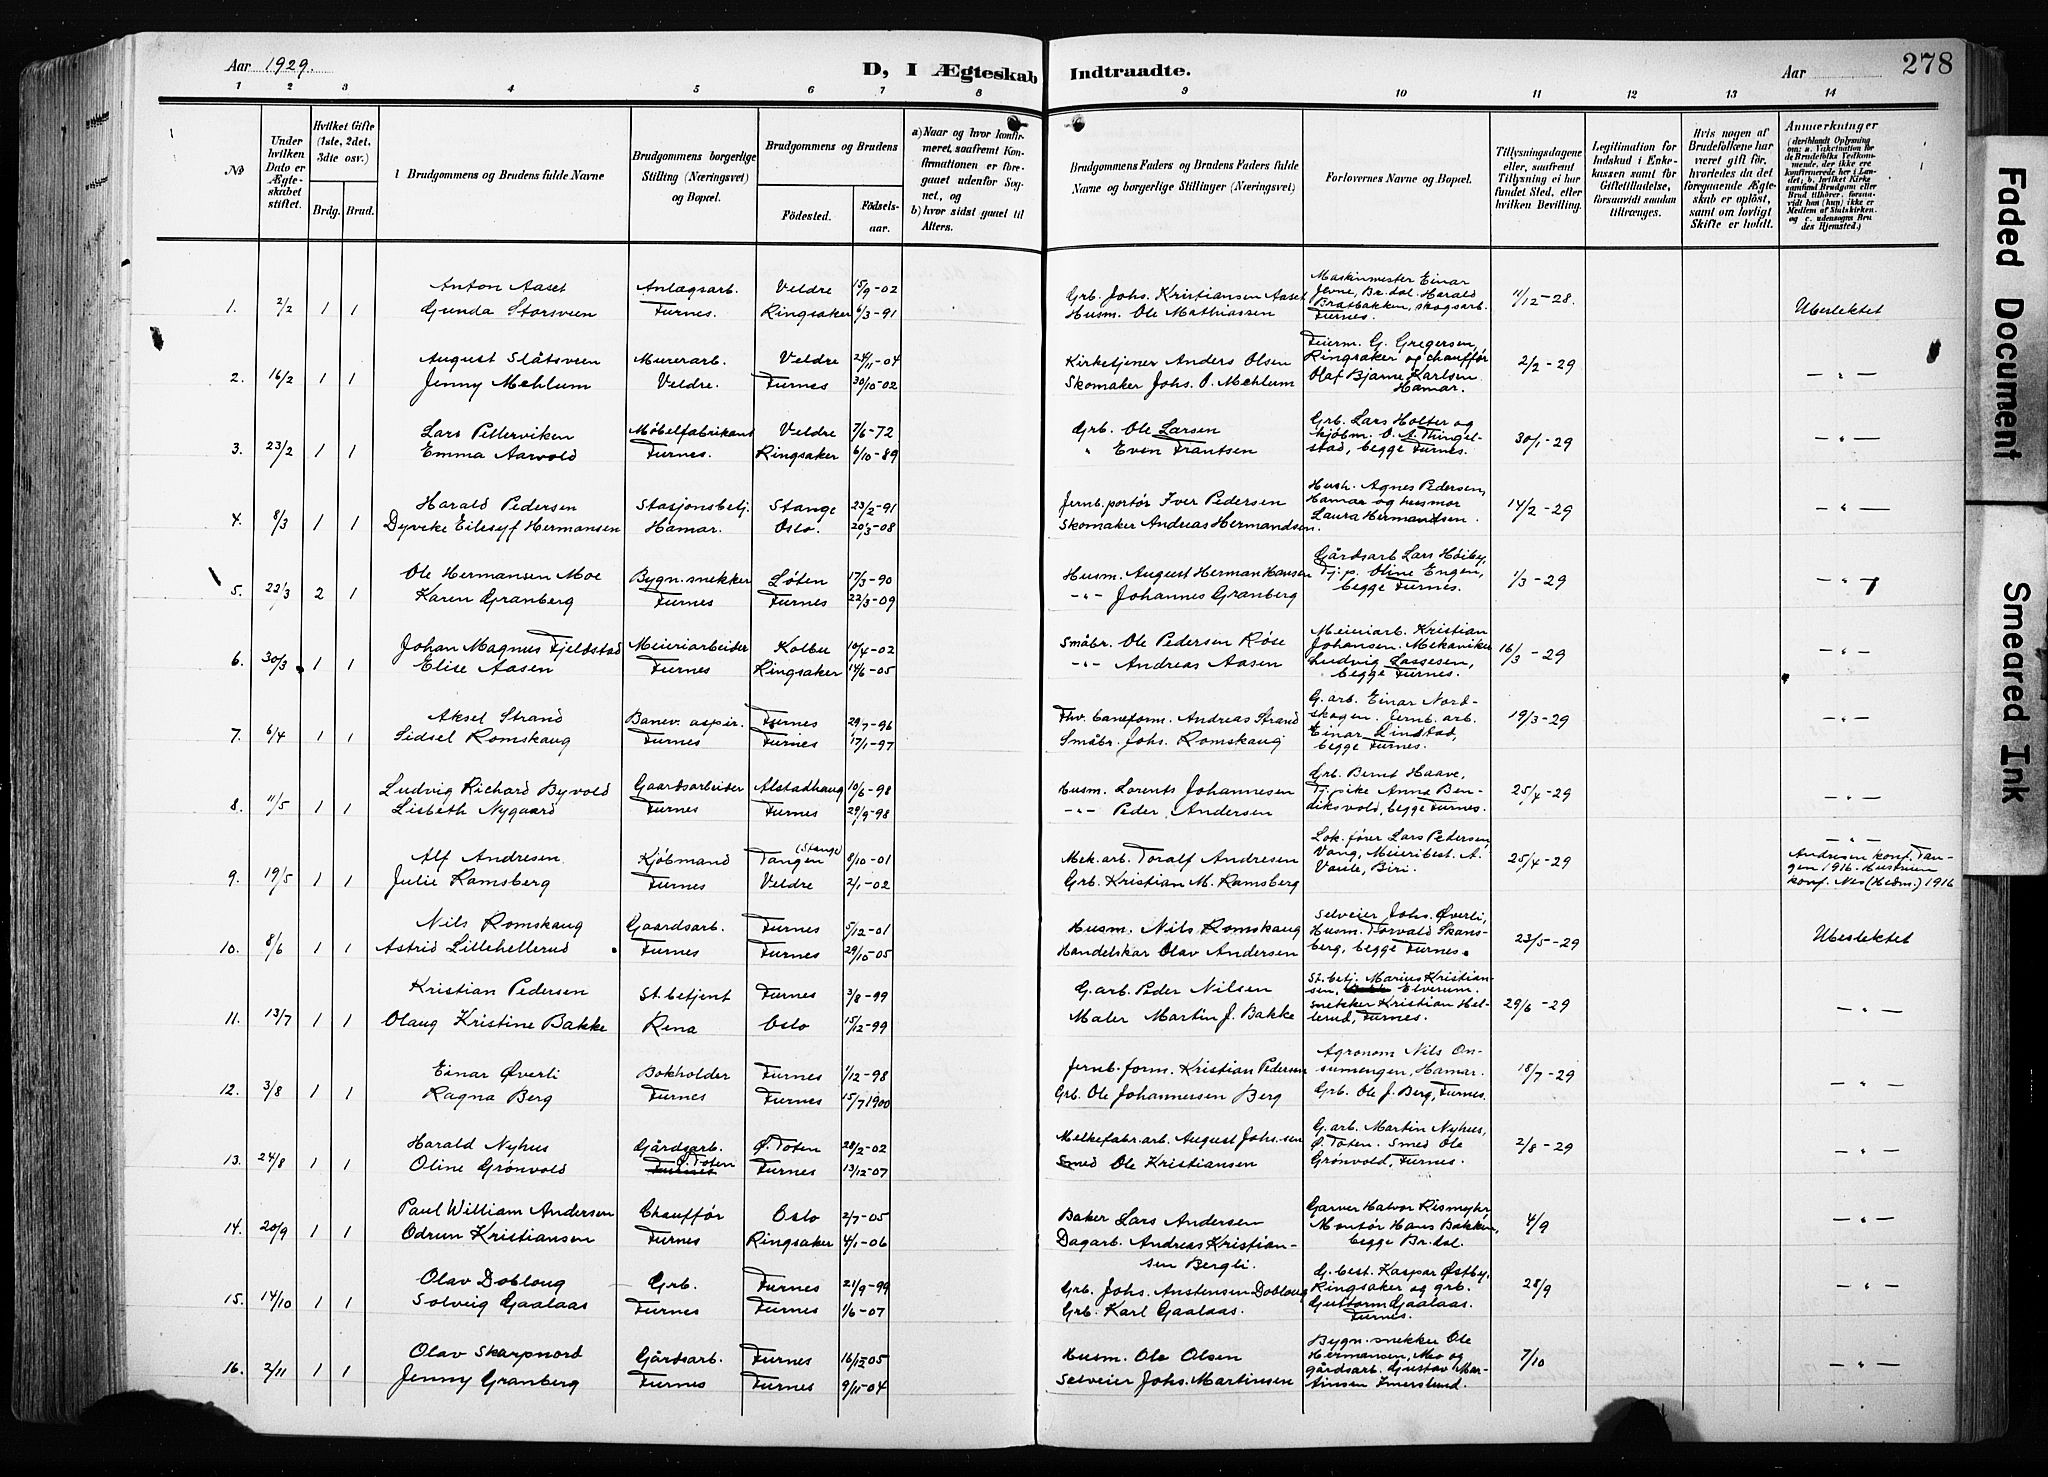 Aar 1929.
D, I Ægteskab Indtraadte.
Aar
278
1 2 3 4 5 6 7 8 9 10 11 12 13 14
No
Under hvilken Dato er Ægteskabet stiftet.
Hvilket Gifte (1ste, 2det, 3die osv.)
Brdg. Brud.
Brudgommens og Brudens fulde Navne
Brudgommens borgerlige Stilling (Næringsvei) og Bopæl.
Brudgommens og Brudens
Fødested.
Fødselsaar.
a) Naar og hvor konfirmeret, saafremt Konfirmationen er foregaaet udenfor Sognet, og
b) hvor sidst gaaet til Alters.
Brudgommens Faders og Brudens Faders fulde Navne og borgerlige Stillinger (Næringsvei)
Forlovernes Navne og Bopæl.
Tillysningsdagene eller, saafremt Tillysning ei har fundet Sted, efter hvilken Bevilling.
Legitimation for Indskud i Enkekassen samt for Giftetilladelse, forsaavidt saadan tiltrænges.
Hvis nogen af Brudefolkene har været gift før, hvorledes da det foregaaende Ægteskab er opløst, samt om lovligt Skifte er holdt.
Anmerkninger
(deriblandt Oplysning om: a. Vakcination for de Brudefolks Vedkommende, der ikke ere konfirmerede her i Landet; b. hvilket Kirkesamfund Brudgom eller Brud tilhører, forsaavidt han (hun) ikke er Medlem af Statskirken, og c. udensogns Brudes Hjemsted.)
1. 2/2 1 1 Anton Aaset Anlægsarb. Veldre 15/9-02 Grb. Johs. Kristiansen Aaset Maskinmester Einar Jevne, Br.dal. Harald Bratbakken, skogsarb. Furnes. 11/12-28. Ubeslektet
Gunda Storsveen Furnes. Ringsaker 6/3-91 Husm. Ole Mathiassen
2. 16/2 1 1 August Slåtsveen Murerarb. Veldre 24/11-04 Kirketjener Anders Olsen Feierm. G. Gregersen, Ringsaker og chauffør Olaf Bjarne Karlsen Hamar. 2/2-29 — " —
Jenny Mehlum Veldre. Furnes 30/10-02 Skomaker Johs. O. Mehlum
3. 23/2 1 1 Lars Pellerviken Møbelfabrikant Veldre 7/6-72 Grb. Ole Larsen Grb. Lars Holter og kjøbm. O. A. Thingelstad, begge Furnes. 30/1-29 — " —
Emma Aarvold Furnes. Ringsaker 6/10-89 " Even Frantsen
4. 8/3 1 1 Harald Pedersen Stasjonsbetj. Stange 23/2-91 Jernb.portør Iver Pedersen Hush. Agnes Pedersen, Hamar og husmor Laura Hermandsen. 14/2-29 — " —
Dyveke Eilesyf Hermansen Hamar. Oslo. 20/3-08 Skomaker Andreas Hermandsen.
5. 22/3 2 1 Ole Hermansen Moe Bygn.snekker Løten 17/3-90 Husm. August Herman Hansen Gårdsarb Lars Høiby, Tj.p. Oline Engen, begge Furnes. 1/3-29 — " —
Karen Granberg Furnes Furnes 22/3-09 — " — Johannes Granberg
6. 30/3 1 1 Johan Magnus Fjeldstad Meieriarbeider Kolbu 10/4-02 Småbr. Ole Pedersen Røse Meieriarb. Kristian Johansen. Mekaviker Ludvig Lassesen, begge Furnes. 16/3-29 — " —
Elise Aasen Furnes Ringsaker 14/6-05 — " — Andreas Aasen
7. 6/4 1 1 Aksel Strand Banev. aspir. Furnes 29/7-96 Fhv. baneform. Andreas Strand G. arb. Einar Nordskogen. Jernb. arb. Einar Lindstad, begge Furnes. 19/3-29 — " —
Sidsel Romskaug Furnes Furnes 17/1-97 Småbr. Johs. Romskaug
8. 11/5 1 1 Ludvig Richard Byvold Gaardsarbeider Alstadhaug 10/6-98 Husm. Lorents Johannesen Grb. Bernt Haave, Tj.pike Anna Bendiksvold, begge Furnes. 25/4-29 — " —
Lisbeth Nygaard Furnes Furnes 29/9-98 — " — Peder Andersen
9. 19/5 1 1 Alf Andresen Kjøbmand Tangen (Stange) 8/10-01 Mek. arb. Toralf Andresen Lok. fører Lars Pedersen Vang, Meieribest. A. Vaule, Biri. 25/4-29 — " — Andresen konf. Tangen 1916. Hustruen konf. Nes (Hedm.) 1916
Julie Ramsberg Furnes Veldre 2/1-02 Grb. Kristian M. Ramsberg
10. 8/6 1 1 Nils Romskaug Gaardsarb. Furnes 5/12-01 Husm. Nils Romskaug Selveier Johs. Øverli, Husm. Torvald Skansberg, begge Furnes. 23/5-29 Ubeslektet
Astrid Lillehellerud Furnes Furnes 29/10-05 Handelskar Olav Andersen
11. 13/7 1 1 Kristian Pedersen St. betjent Furnes 3/8-99 G. arb. Peder Nilsen St. betj. Marius Kristiansen, Elverum. Snekker Kristian Hellerud, Furnes. 29/6-29 — " —
Olaug Kristine Bakke Rena Oslo 15/12-99 Maler Martin J. Bakke
12. 3/8 1 1 Einar Øverli Bokholder Furnes 1/12-98 Jernb.-form. Kristian Pedersen Agronom Nils Onsumengen, Hamar. Grb. Ole J. Berg, Furnes. 18/7-29 — " —
Ragna Berg Furnes Furnes 15/7 1900 Grb. Ole Johannersen Berg
13. 24/8 1 1 Harald Nyhus Gårdsarb. Ø. Toten 28/2-02 Melkefabr.arb. August Johs.sen G. arb. Martin Nyhus, Ø. Toten. Smed Ole Grønvold, Furnes. 2/8-29 — " —
Oline Grønvold Ø. Toten Furnes 13/12-07 Smed Ole Kristiansen
14. 20/9 1 1 Paul William Andersen Chauffør Oslo 2/7-05 Baker Lars Andersen Garver Halvor Rismyhr, Montør Hans Bakken, begge Br.dal. 4/9 — " —
Odrun Kristiansen Furnes Ringsaker 4/1-06 Dagarb. Andreas Kristiansen Bergli.
15. 14/10 1 1 Olav Dobloug Grb. Furnes 21/9-99 Grb. Johs. Anstensen Dobloug G. best. Kaspar Østby, Ringsaker og grb. Guttorm Gaalaas. Furnes. 28/9 — " —
Solveig Gaalaas Furnes Furnes 1/6-07 Grb. Karl Gaalaas.
16. 2/11 1 1 Olav Skarpnord Gårdsarb. Furnes 16/12-05 Husm. Ole Olsen Bygn. snekker Ole Hermansen, Moe og gårdsarb. Gustav Martinsen Imerslund. 7/10 — " —
Jenny Granberg Furnes Furnes 9/11-04 Selveier Johs. Martinsen
Faded Document
Smeared Ink